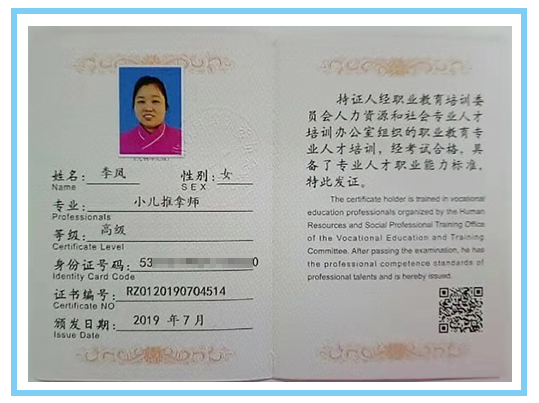 姓名: 李凤 性别: 女
Name SEX
专业: 小儿推拿师
Professionals
等级: 高级
Certificate Level
身份证号码: 53 0
Identity Card Code
证书编号: RZ0120190704514
Certificate NO
颁发日期: 2019 年 7 月
Issue Date
持证人经职业教育培训委
员会人力资源和社会专业人才
培训办公室组织的职业教育专
业人才培训，经考试合格，具
备了专业人才职业能力标准，
特此发证。
The certificate holder is trained in vocational
education professionals organized by the Human
Resources and Social Professional Training Office
of the Vocational Education and Training
Committee. After passing the examination, he has
the professional competence standards of
professional talents and is hereby issued.